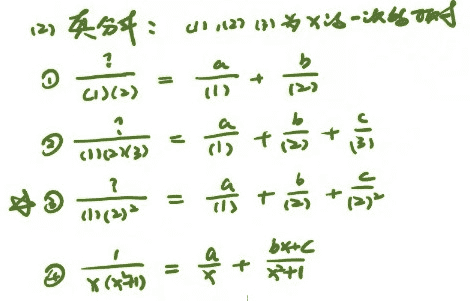 (2) 真分式: (1),(2),(3)为x的一次的
① ?/((1)(2)) = a/(1) + b/(2)
② ?/((1)(2)(3)) = a/(1) + b/(2) + c/(3)
☆③ ?/((1)(2)²) = a/(1) + b/(2) + c/(2)²
④ 1/(x(x²+1)) = a/x + (bx+c)/(x²+1)